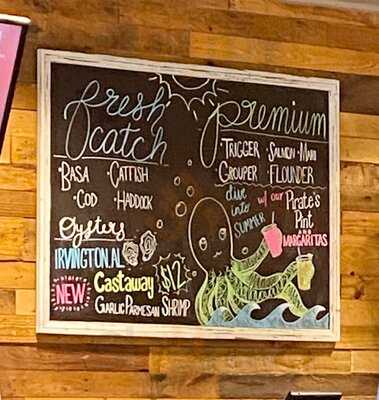 fresh
catch
BASA · CATFISH
· COD · HADDOCK
Oysters
IRVINGTON, AL
NEW Castaway $12
GARLIC PARMESAN SHRIMP
premium
· TRIGGER · SALMON · MAHI
GROUPER · FLOUNDER
dive
into
SUMMER
w/ our
PIRATE'S
PINT
AND
MARGARITAS